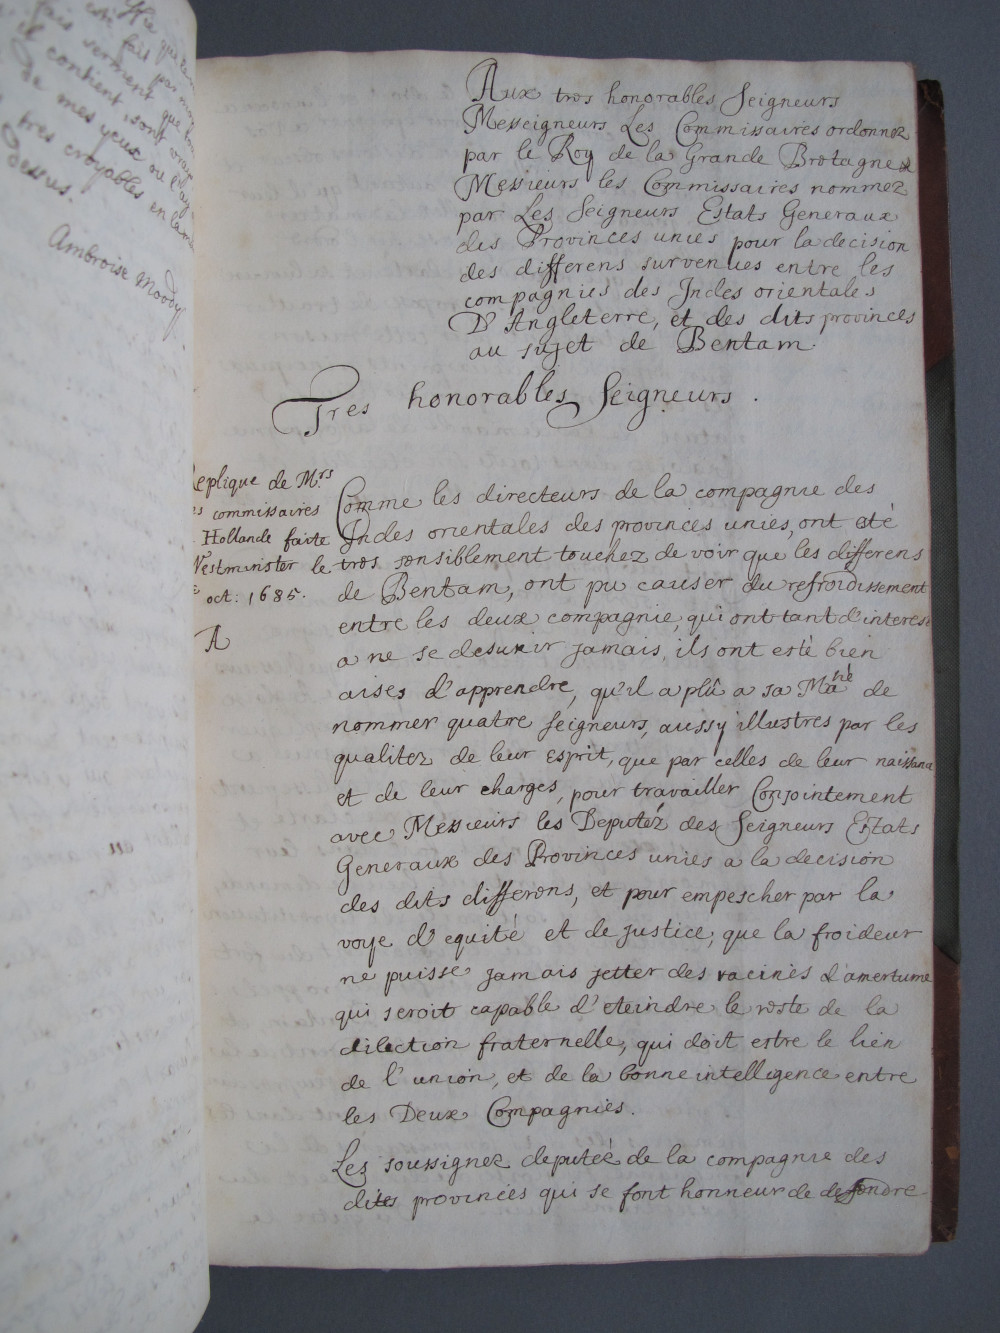 est fait par mon
fais serment que
il contient sont vray
de mes yeux ou l'ay
tres croyables en la
dessus.
Ambroise Moody.
Aux tres honorables Seigneurs
Messeigneurs Les Commissaires ordonnez
par le Roy de la Grande Bretagne &
Messieurs les Commissaires nommez
par Les Seigneurs Estats Generaux
des Provinces unies pour la decision
des differens survenues entre les
compagnies des Indes orientales
D'Angleterre, et des dits provinces
au sujet de Bentam.
Tres honorables Seigneurs.
Replique de Mrs
commissaires
Hollande faite
Westminster le
oct: 1685.
A
Comme les directeurs de la compagnie des
Indes orientales des provinces unies, ont eté
tres sensiblement touchez, de voir que les differens
de Bentam, ont pu causer du refroidissement
entre les deux compagnie, qui ont tant d'interest
a ne se desunir jamais, ils ont esté bien
aises d'apprendre, qu'il a plû a sa Maté de
nommer quatre seigneurs, aussy illustres par les
qualitez de leur esprit, que par celles de leur naissance
et de leur charges, pour travailler Conjointement
avec Messieurs les Deputéz des Seigneurs Estats
Generaux des Provinces unies a la decision
des dits differens, et pour empescher par la
voye d'equité et de justice, que la froideur
ne puisse jamais jetter des racines d'amertume
qui seroit capable d'eteindre le reste de la
dilection fraternelle, qui doit estre le lien
de l'union, et de la bonne intelligence entre
les Deux Compagnies.
Les soussignez deputéz de la compagnie des
dites provinces qui se font honneur de defendre